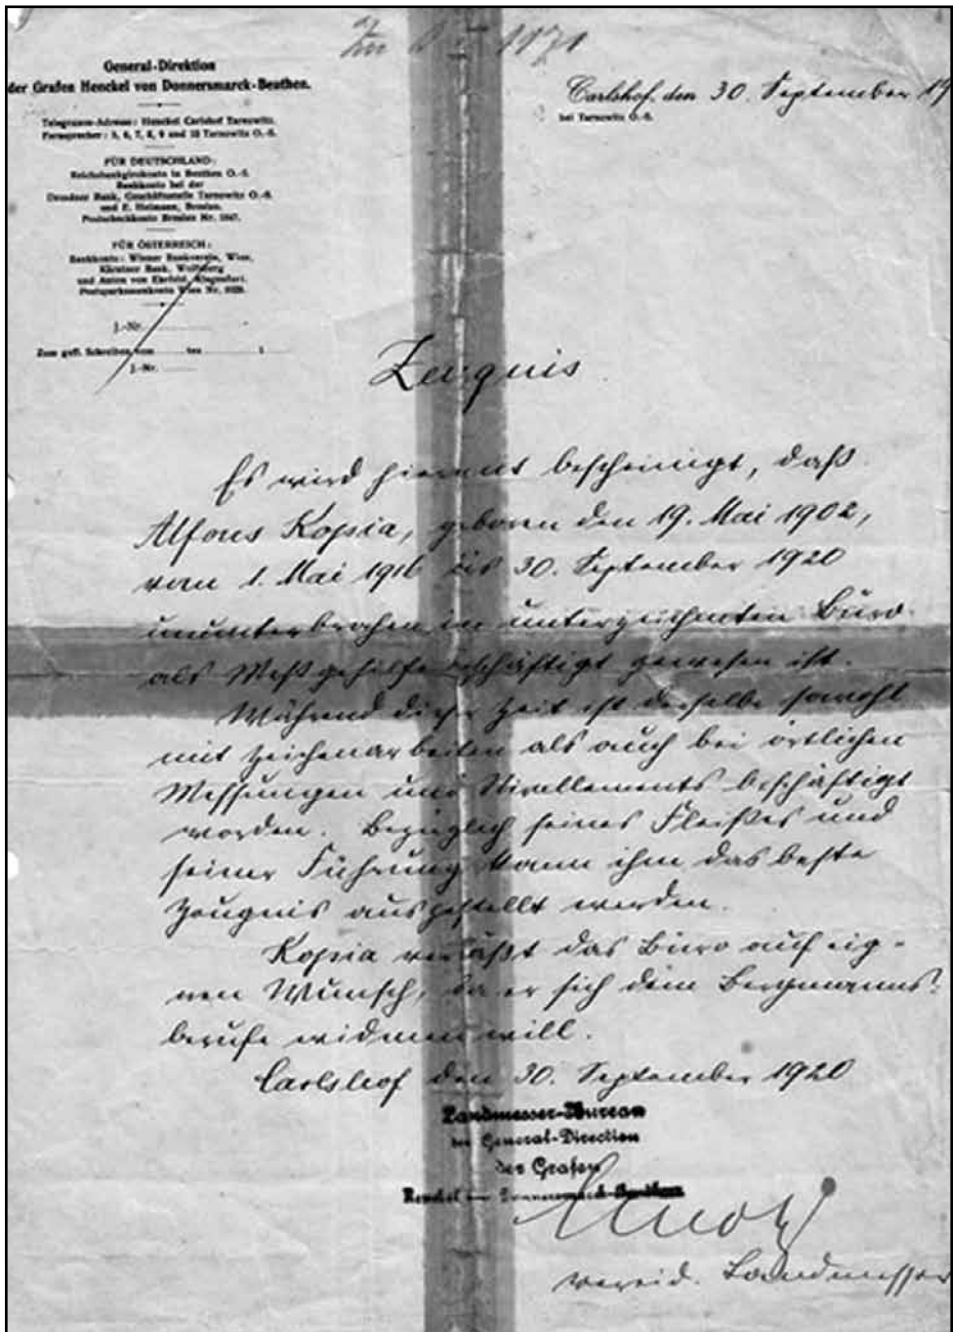 General-Direktion
der Grafen Henckel von Donnersmarck-Beuthen.
Telegramm-Adresse: Henckel Carlshof Tarnowitz.
Fernsprecher: 5, 6, 7, 8, 9 und 10 Tarnowitz O.-S.
FÜR DEUTSCHLAND:
Reichsbankgirokonto in Beuthen O.-S.
Bankkonto bei der
Dresdner Bank, Geschäftsstelle Tarnowitz O.-S.
und E. Heimann, Breslau.
Postscheckkonto Breslau Nr.
FÜR ÖSTERREICH:
Bankkonto: Wiener Bankverein, Wien,
Kärntner Bank, Wolfsberg
und Anton von Ehrfeld, Klagenfurt.
Postsparkassenkonto Wien Nr.
J.-Nr.
Zum gefl. Schreiben vom ten 1
J.-Nr.
1171
Carlshof, den 30. September 19
bei Tarnowitz O.-S.
Zeugnis
Es wird hiermit bescheinigt, daß
Alfons Kopia, geboren den 19. Mai 1902,
vom 1. Mai 1916 bis 30. September 1920
ununterbrochen im unterzeichneten Büro
als Meßgehilfe beschäftigt gewesen ist.
Während dieser Zeit ist derselbe sowohl
mit Zeichenarbeiten als auch bei örtlichen
Messungen und Nivellements beschäftigt
worden. Bezüglich seines Fleißes und
seiner Führung kann ihm das beste
Zeugnis ausgestellt werden.
Kopia verläßt das Büro auf eig-
nen Wunsch, da er sich dem Bergmanns-
berufe widmen will.
Carlshof den 30. September 1920
Landmesser-Bureau
der General-Direction
der Grafen
Henckel von Donnersmarck-Beuthen
vereid. Landmesser